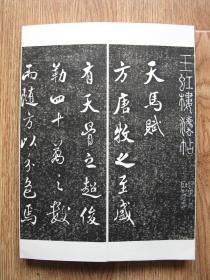 玉虹樓法帖
天馬賦
方唐牧之至盛
有天骨之超俊
勒四十萬之數
而隨方以分色焉